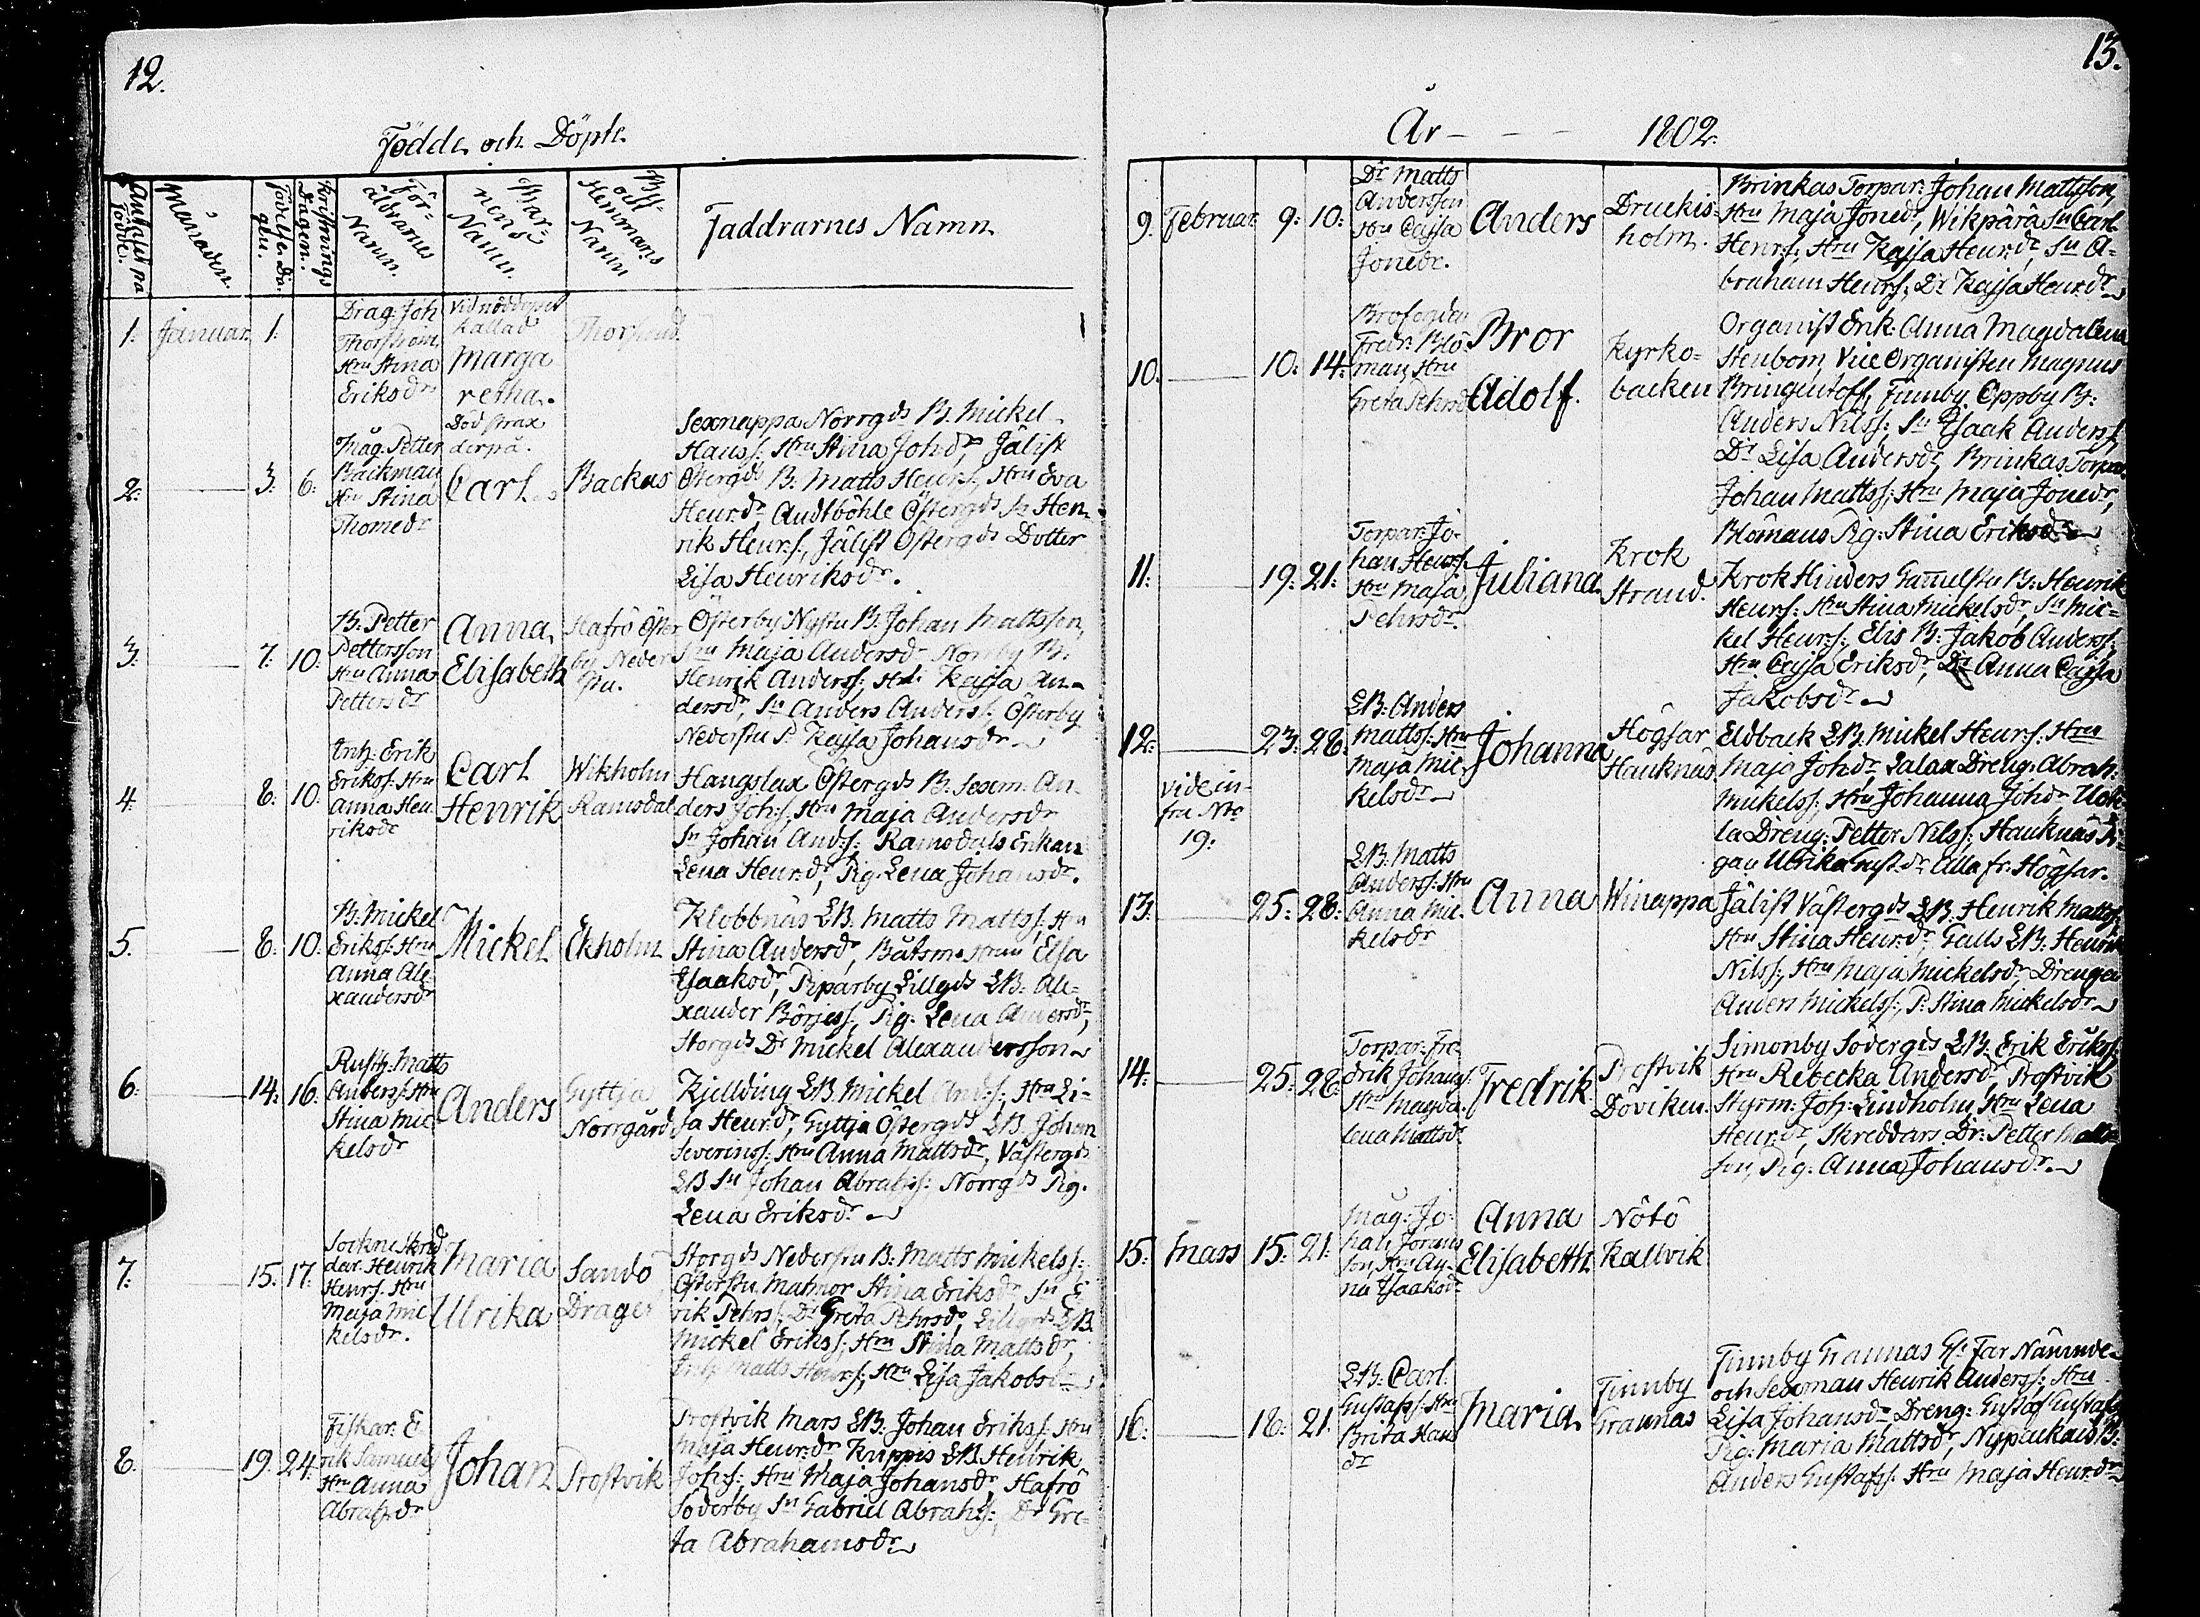 12.
Födde och Döpte
Månaden.
Föräldrarnes Namn.
Barnens Namn.
By- och Hemmans Namn
Faddrarnes Namn
1. Januar. 1.
Drag. Joh
Hru Stina
Eriksdr
Vid nöddopet
kallad
Marga
retha.
Död strax
derpå.
2. 3. 6.
Måg. Petter
Backman
Hru Stina
Thomedr
Carl
Backas
Sexnappa Norrgds B. Mickel
Hanss: Hru Stina Johdr, Jälist
Östergds B: Matts Henrs:, Hru Eva
Henr.dr, Andtböhle Östergds Sn Hen-
rik Henrs:, Jälist Östergds Dotter
Lisa Henriksdr.
3. 7. 10.
B. Petter
Pettersson
Hru Anna
Pettersdr
Anna
Elisabeth
Hafrö Öster
by Neder
stu.
Österby Nystu B. Johan Mattsson,
Hru Maja Andersdr Norrby B.
Henrik Anderss: Hru Kajsa An-
dersdr, Sn Anders Anderss: Österby
Nederstu P. Kajsa Johansdr
4. 8. 10.
Inh: Erik
Erikss: Hru
Anna Hen
riksdr
Carl
Henrik
Wikholm
Ramsdal
Hangslax Östergds B. Sexm: An-
ders Johs:, Hru Maja Andersdr
Sn Johan Ands: Ramsdals Enkan
Lena Henr.dr, Pig. Lena Johansdr.
5. 8. 10.
B. Mickel
Erikss: Hru
Anna Ale
xandersdr
Mickel
Ekholm
Klobbnäs LB. Matts Mattss: Hru
Stina Andersdr, Båtsm: Hrun Elsa
Isaaksdr, Piparby Lillgds LB: Ale-
xander Börjess:, Pig. Lena Andersdr,
Storgds Dr Mickel Alexandersson
6. 14. 16.
Rusth: Matts
Anderss: Hru
Stina Mic
kelsdr
Anders
Gyttja
Norrgård
Kjellding LB. Mickel Ands:, Hru Li-
sa Henrdr, Gyttja Östergds LB. Johan
Severinss: Hru Anna Mattsdr, Västergds
LB Sn Johan Abrahs: Norrgds Pig.
Lena Eriksdr
7. 15. 17.
Sockne Skräd
dar. Henrik
Henrs: Hru
Maja Mic
kelsdr.
Maria
Ulrika
Sandö
Drager
Storgds Nederstu B: Matts Mickelss:,
Österstu Matmor Stina Eriksdr Sn E-
rik Pehrs:, Dr Greta Pehrsdr, Lillgrds LB.
Mickel Erikss:, Hru Stina Mattsdr,
Inh: Matts Henrs:, Hru Lisa Jakobsdr
8. 19. 24.
Fiskar: E-
rik Samuels
Hru Anna
Abrahsdr
Johan
Prostvik
Prostvik Mars LB: Johan Erikss: Hru
Maja Henr:dr, Krippis LB. Henrik
Johs: Hru Maja Johansdr, Hafrö
Söderby Sn Gabriel Abrahs:, Dr Gre-
ta Abrahamsdr
13.
År - - - 1802.
9. Februar. 9. 10.
Dr Matts
Andersson
Hru Cajsa
Jonedr.
Anders
Druckis-
holm.
Brinkas Torpar: Johan Mattsson,
Hru Maja Jonedr, Wikpärä Sn Carl
Henrs:, Hru Kajsa Henr.dr, Sn A-
braham Henrs:, Dr Kajsa Henr.dr
10. 10. 14.
Brofogden
Fredr. Blo-
man, Hru
Greta Pehrsd
Bror
Adolf.
Kyrko-
backen
Organist Enk: Anna Magdalena
Stenbom, Vice Organisten Magnus
Finnby Oppby B:
Anders Nilss: Sn Isaak Anderss:
Dr Lisa Andersdr, Brinkas Torpar.
Johan Mattss: Hru Maja Jonedr,
Blomans Pig: Stina Eriksdr
11. 19. 21.
Torpar: Jo-
han Henrs:
Hru Maja
Pehrsdr
Juliana
Krok
Strand.
Krok Hinders Gamelstu B: Henrik
Henrs: Hru Stina Mickelsdr, Sn Mic-
kel Henrs:, Elis B: Jakob Anderss:
Hru Cajsa Eriksdr, Dr Anna Cajsa
Jakobsdr
12. 23. 28.
vide in-
fra Nro
19.
LB: Anders
Mattss: Hru
Maja Mic-
kelsdr
Johanna
Högsar
Hauknäs
Eldback LB. Mickel Henrs: Hru
Maja Johdr, Lalax Dreng: Abrah:
Mickelss:, Hru Johanna Johdr
la Dreng: Petter Nilss:, Hauknäs Pi-
gan Ulrika Gust.dr Alla fr. Högsar.
13. 25. 28.
LB: Matts
Anderss: Hru
Anna Mic-
kelsdr
Anna
Winappa
Jälist Västergds LB. Henrik Mattss:
Hru Stina Henr.dr, Galls LB: Henrik
Nilss:, Hru Maja Mickelsdr, Drengen
Anders Mickelss:, P. Stina Mickelsdr
14. 25. 28.
Torpar: Fre
drik Johans:
Hru Magda-
lena Mattsdr
Fredrik
Prostvik
Döviken.
Simonby Södergds LB: Erik Erikss:
Hru Rebecka Andersdr, Prostvik
Styrm: Joh: Lindholm, Hru Lena
Henr:dr, Skreddars Dr: Petter Matts-
son, Pig: Anna Johansdr
15. Mars 15. 21.
Måg: Jo-
han
son, Hru An-
na Isaaksdr
Anna
Elisabeth
Nötö
Kallvik
16. 18. 21.
LB: Carl
Gustafss: Hru
Brita Hans
dr
Maria
Finnby
Grannas
Finnby Grannas Gl: Far Nämnde-
och Sexman Henrik Anderss: Hru
Lisa Johansdr Dreng: Gustaf Gustafs:
Pig: Maria Mattsdr, Nypackais B:
Anders Gustafss: Hru Maja Henr.dr